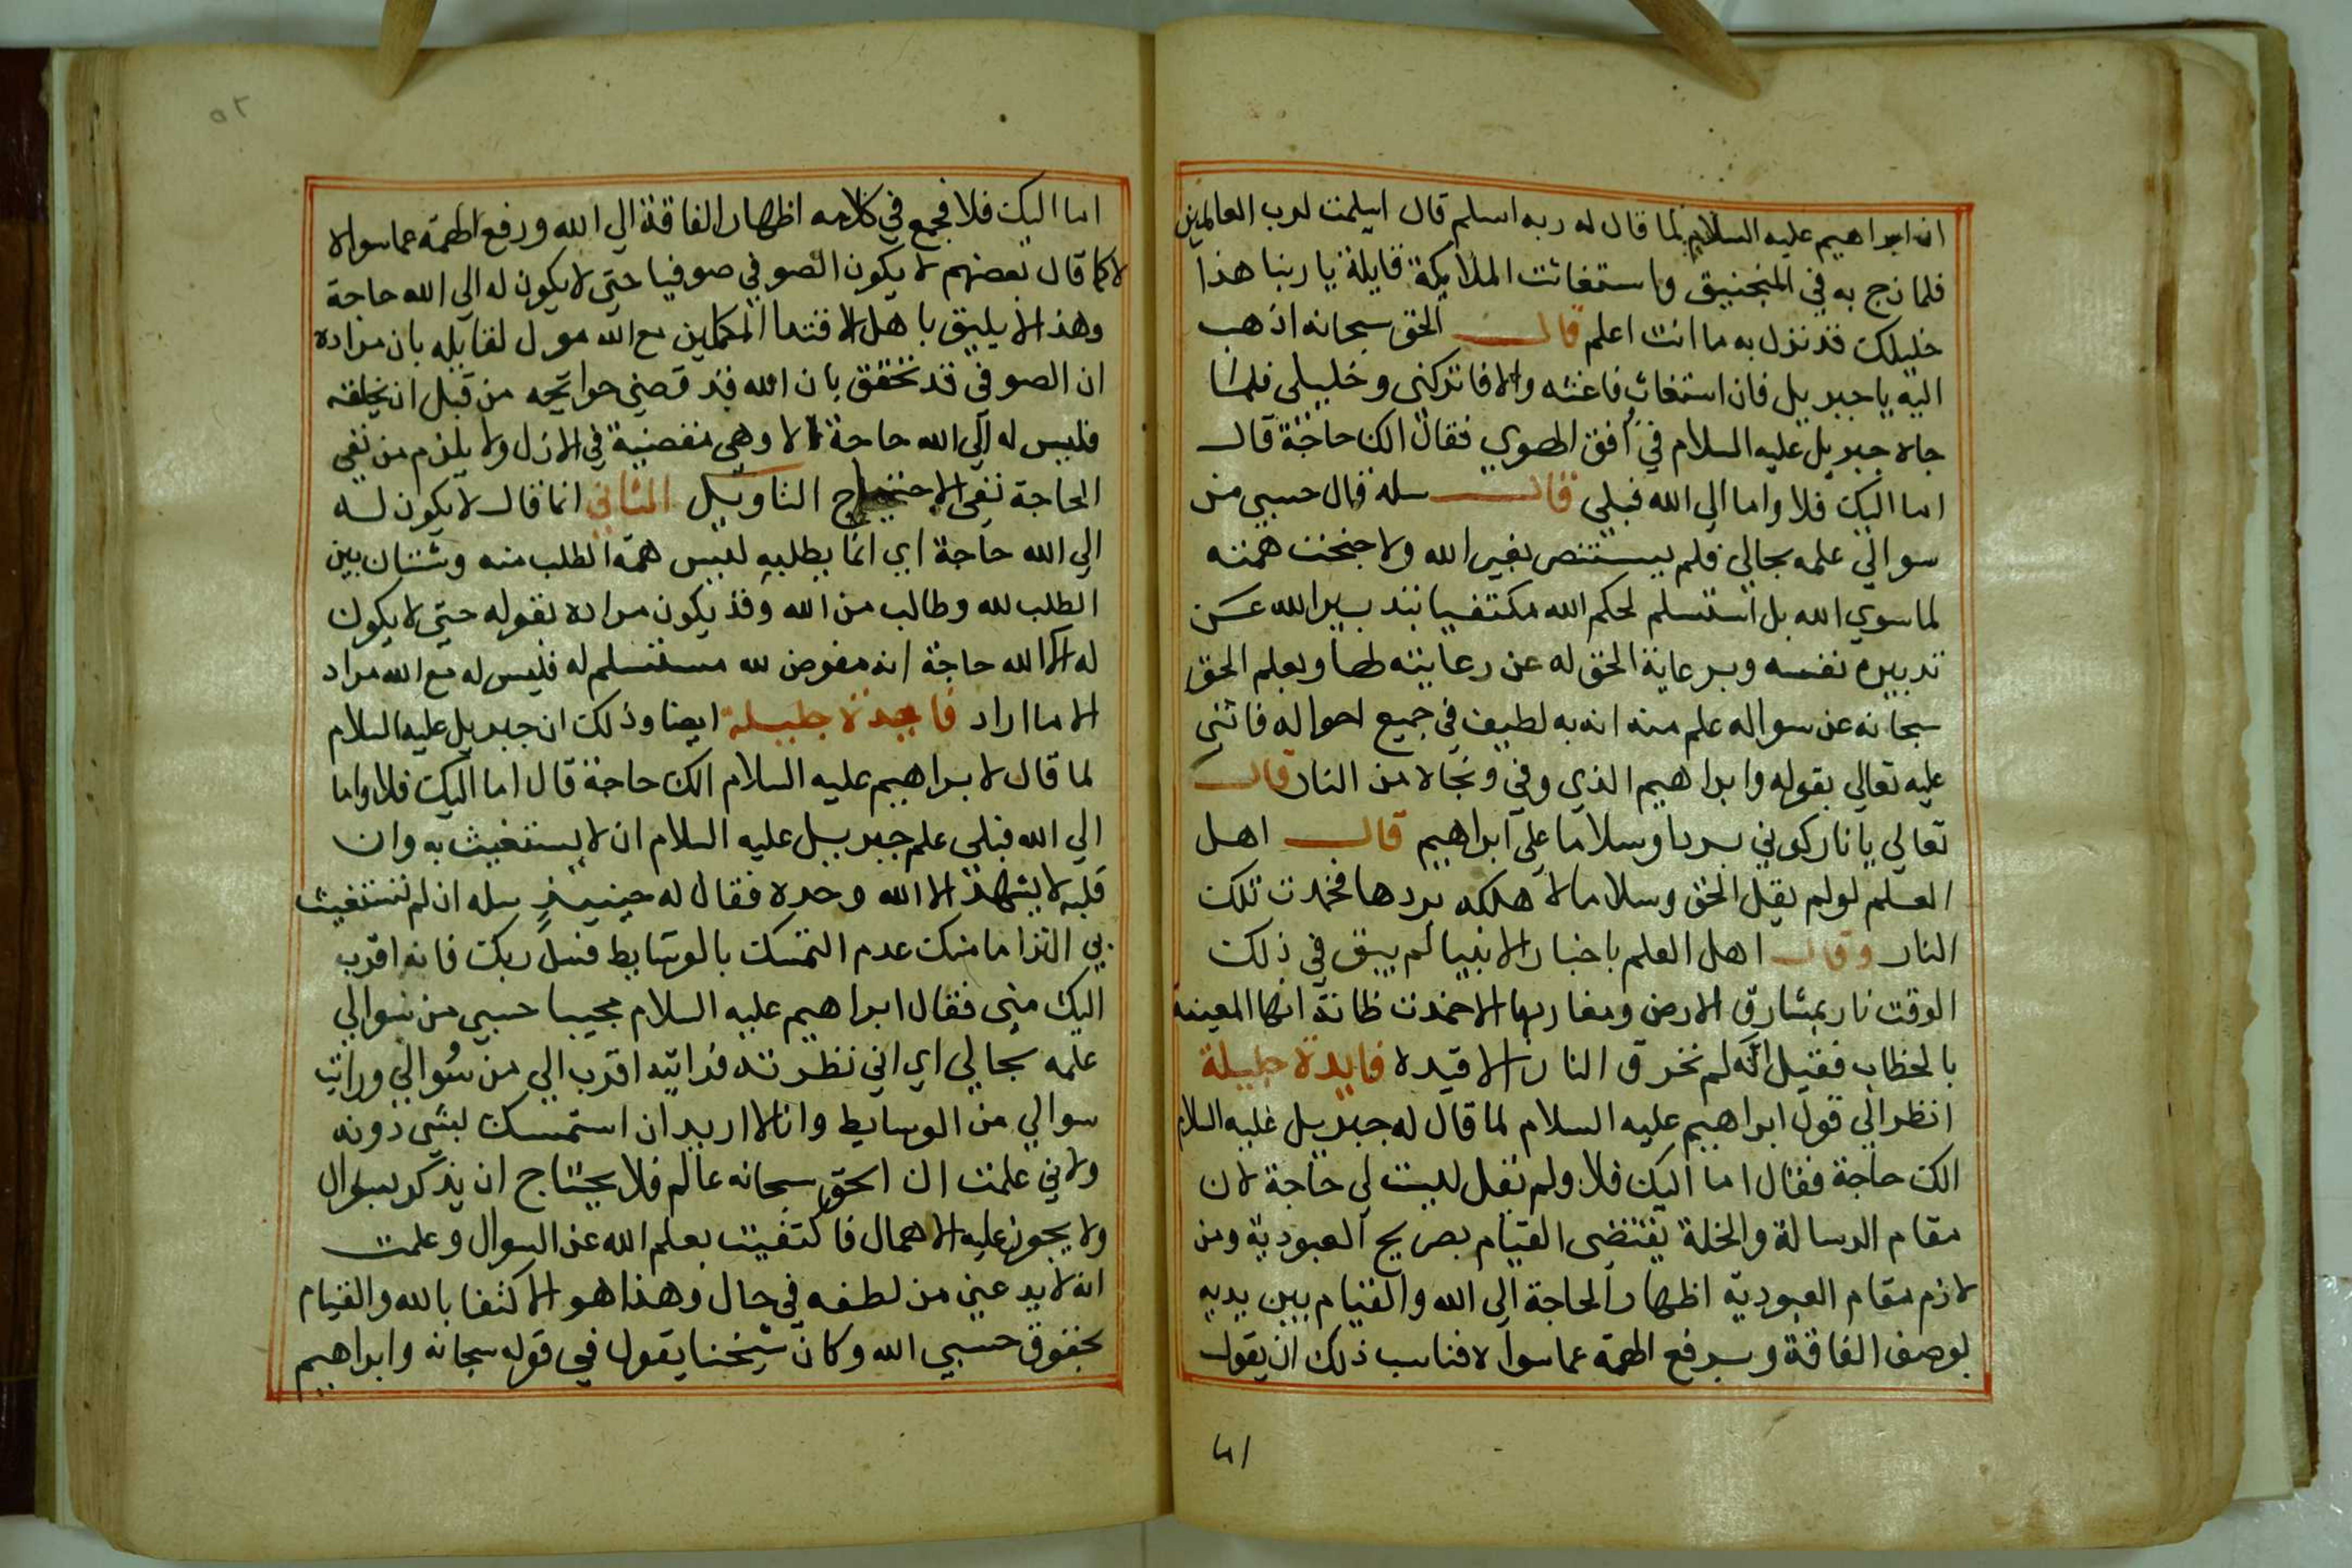 ان ابراهيم عليه السلام لما قال له ربه اسلم قال اسلمت لرب العالمين
فلما زج به في المنجنيق واستغاثت الملايكة قايلة يا ربنا هذا
خليلك قد نزل به ما انت اعلم قال الحق سبحانه اذهب
اليه يا جبريل فان استغاث فاغثه والا فاتركني وخليلي فلما
جاه جبريل عليه السلام في افق الهوي فقال الك حاجة قال
اما اليك فلا واما الي الله فبلي قال سله قال حسبي من
سوالي علمه بحالي فلم يستنصر بغير الله ولا جنحت همته
لما سوي الله بل استسلم لحكم الله مكتفيا بتدبير الله عن
تدبيره نفسه وبرعاية الحق له عن رعايته لها وبعلم الحق
سبحانه عن سواله علم منه انه به لطيف في جميع احواله فاثني
عليه تعالي بقوله وابراهيم الذي وفي ونجاه من النار قال
تعالي يا نار كوني بردا وسلاما علي ابراهيم قال اهل
العلم لو لم يقل الحق وسلاما لاهلكه بردها فخمدت تلك
النار وقال اهل العلم باخبار الانبيا لم يبق في ذلك
الوقت نار بمشارق الارض ومغاربها الا خمدت ظانة انها المعينة
بالخطاب فقيل انه لم تحرق النار الا قيده فايدة جليلة
انظر الي قول ابراهيم عليه السلام لما قال له جبريل عليه السلام
الك حاجة فقال اما اليك فلا ولم يقل ليست لي حاجة لان
مقام الرسالة والخلة يقتضى القيام بصريح العبودية ومن
لازم مقام العبودية اظهار الحاجة الي الله والقيام بين يديه
بوصف الفاقة وبرفع الهمة عما سواه فناسب ذلك ان يقول
اما اليك فلا فجمع في كلامه اظهار الفاقة الي الله ورفع الهمة عما سواه
لا كما قال بعضهم لا يكون الصوفي صوفيا حتي لا يكون له الي الله حاجة
وهذا لا يليق باهل الاقتدا المكملين مع انه مول لقايله بان مراده
ان الصوفي قد تحقق بان الله قد قضي حوايجه من قبل ان يخلقه
فليس له الي الله حاجة الا وهي مقضية في الازل ولا يلزم من نفي
الحاجة نفي الاحتياج التاويل الثاني انما قال لا يكون له
الي الله حاجة اي انما يطلبه ليس همه الطلب منه وشتان بين
الطلب لله وطالب من الله وقد يكون مراده بقوله حتي لا يكون
له الي الله حاجة انه مفوض لله مستسلم له فليس له مع الله مراد
الا ما اراد فايدة جليلة ايضا وذلك ان جبريل عليه السلام
لما قال لابراهيم عليه السلام الك حاجة قال اما اليك فلا واما
الي الله فبلي علم جبريل عليه السلام ان لا يستغيث به وان
قلبه لا يشهد الا الله وحده فقال له حينيذ سله ان لم تستغيث
بي التزاما منك عدم التمسك بالوسايط فسل ربك فانه اقرب
اليك مني فقال ابراهيم عليه السلام مجيبا حسبي من سوالي
علمه بحالي اي اني نظرت فرايته اقرب الي من سوالي ورايت
سوالي من الوسايط وانا لا اريد ان استمسك بشي دونه
ولاني علمت ان الحق سبحانه عالم فلا يحتاج ان يذكر بسوال
ولا يجوز عليه الاهمال فاكتفيت بعلم الله عن السوال وعلمت
انه لا يدعني من لطفه في حال وهذا هو الاكتفا بالله والقيام
بحقوق حسبي الله وكان شيخنا يقول في قوله سبحانه وابراهيم